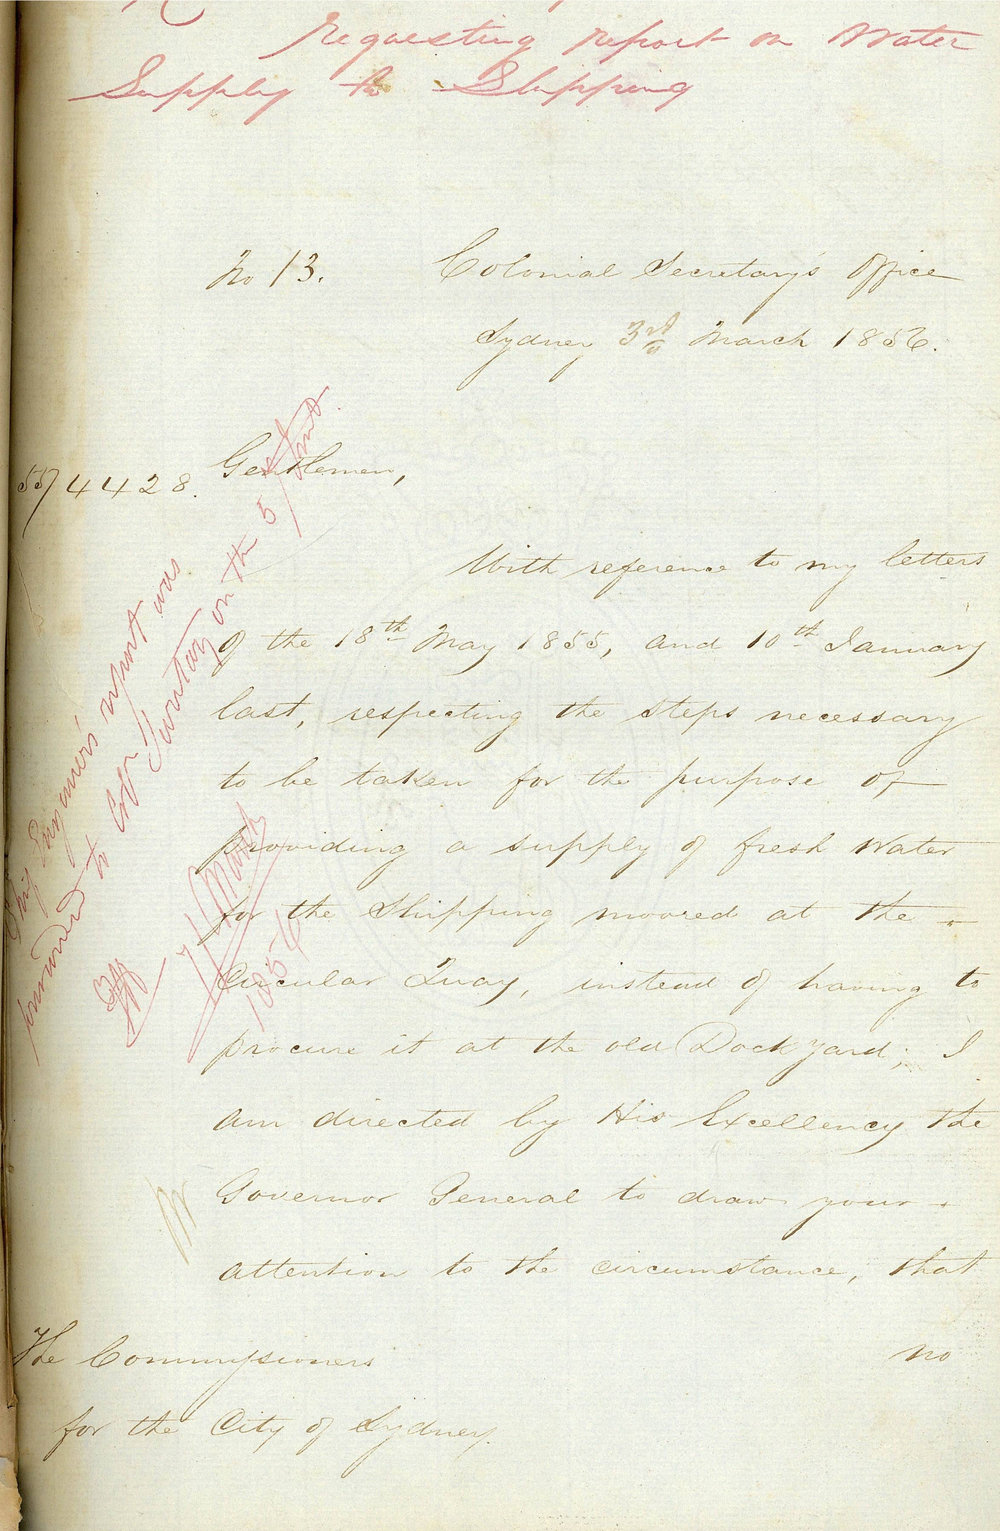 Requesting report on Water
Supply to Shipping
No 13.
Colonial Secretary's Office
Sydney 3rd March 1856.
55/4428.
Gentlemen,
With reference to my letters
of the 18th May 1855, and 10th January
last, respecting the steps necessary
to be taken for the purpose of
providing a supply of fresh Water
for the Shipping moored at the
Circular Quay, instead of having to
procure it at the old Dock Yard; I
am directed by His Excellency the
Governor General to draw your
attention to the circumstance, that
no
The Commissioners
for the City of Sydney.
Engineer's report was
forwarded to Col Secretary on the 5/ Inst.
7/ March
1856